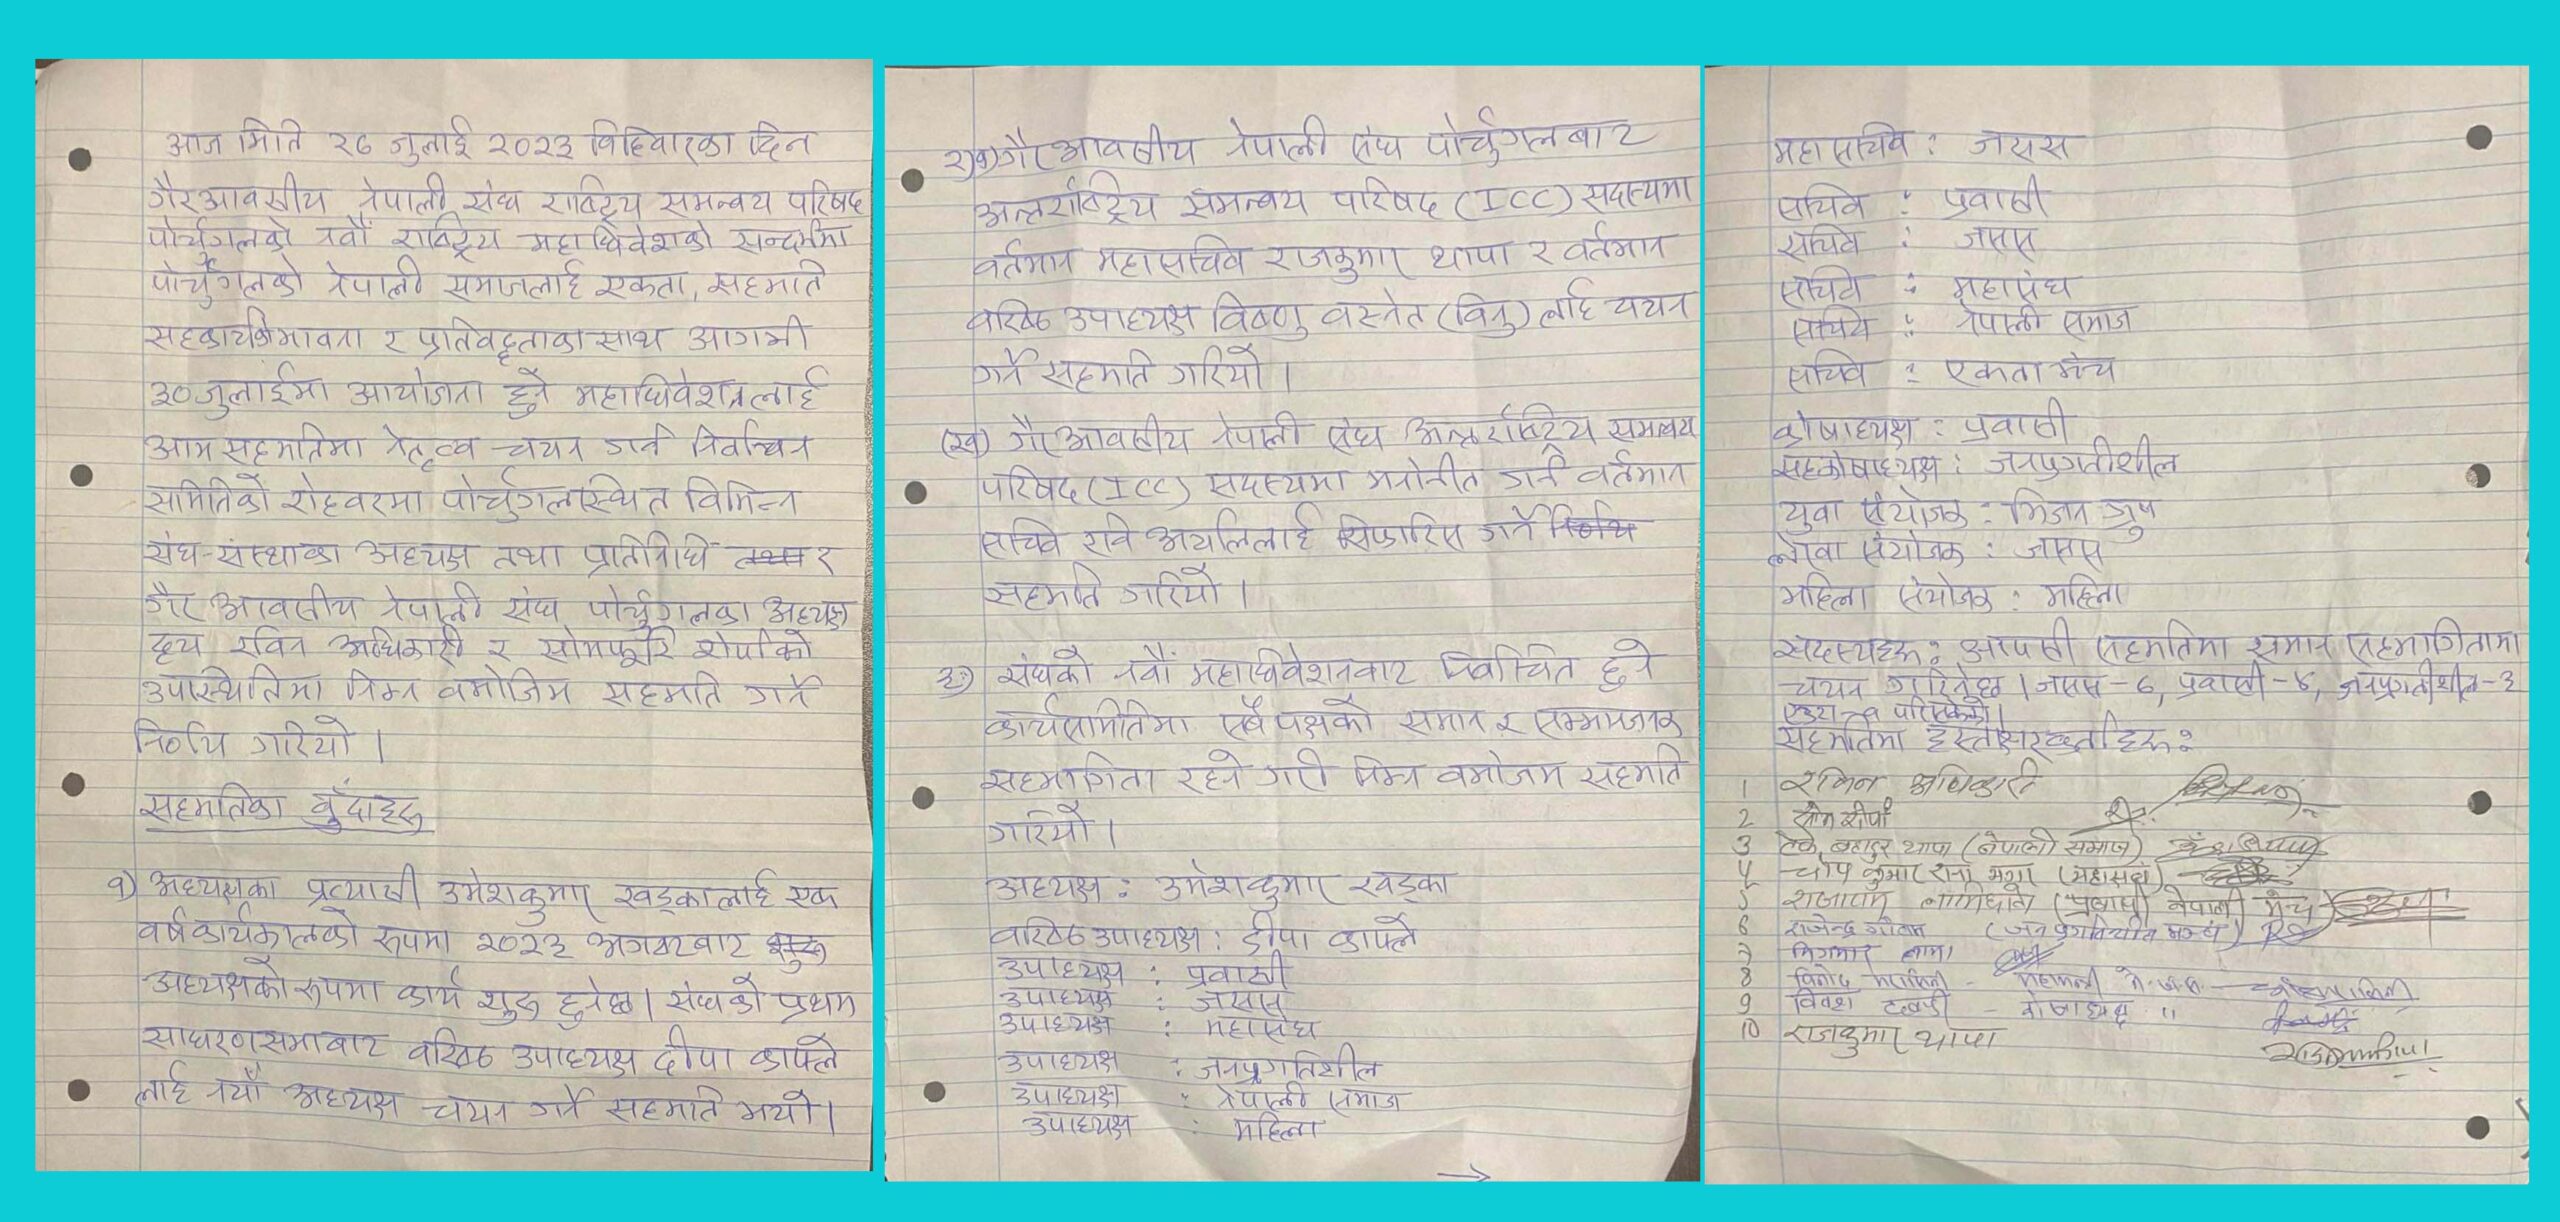 आज मिति २७ जुलाई २०२३ विहिवारका दिन
गैरआवसीय नेपाली संघ राष्ट्रिय समन्वय परिषद
पोर्चुगलको नवौं राष्ट्रिय महाधिवेशको सन्दर्भमा
पोर्चुगलको नेपाली समाजलाई एकता, सहमति
सहकार्यको भावना र प्रतिवद्दताका साथ आगामी
३० जुलाईमा आयोजना हुने महाधिवेशनलाई
आम सहमतिमा नेतृत्व चयन गर्न निर्वाचन
समितिको रोहवरमा पोर्चुगलस्थित विभिन्न
संघ-संस्थाका अध्यक्ष तथा प्रतिनिधि र
गैर आवसीय नेपाली संघ पोर्चुगलका अध्यक्ष
द्वय रविन अधिकारी र सोमफूरि शेर्पाको
उपस्थितिमा निम्न वमोजिम सहमति गर्ने
निर्णय गरियो ।
सहमतिका बुँदाहरु
१) अध्यक्षका प्रत्यासी उमेशकुमार खड्कालाई एक
वर्ष कार्यकालको रूपमा २०२३ अगष्टबाट
अध्यक्षको रूपमा कार्य शुरु हुनेछ । संघको प्रथम
साधरणसभाबाट वरिष्ठ उपाध्यक्ष दीपा काफ्ले
लाई नयाँ अध्यक्ष चयन गर्ने सहमति भयो ।
२)क) गैर आवसीय नेपाली संघ पोर्चुगलबाट
अन्तर्राष्ट्रिय समन्वय परिषद (ICC) सदस्यमा
वर्तमान महासचिव राजकुमार थापा र वर्तमान
वरिष्ठ उपाध्यक्ष विष्णु वस्नेत (विनु) लाई चयन
गर्ने सहमति गरियो ।
(ख) गैरआवसीय नेपाली संघ अन्तर्राष्ट्रिय समन्वय
परिषद (ICC) सदस्यमा मनोनीत गर्न वर्तमान
सचिव रवि अर्यालिलाई सिफारिस गर्ने
सहमति गरियो ।
३) संघको नवौं महाधिवेशनवाट निर्वाचित हुने
कार्यसमितिमा सबै पक्षको समान र सम्मानजनक
सहभागिता रहने गरी निम्न वमोजम सहमति
गरियो ।
अध्यक्ष : उमेशकुमार खड्का
वरिष्ठ उपाध्यक्ष : दीपा काफ्ले
उपाध्यक्ष : प्रवासी
उपाध्यक्ष : जसस
उपाध्यक्ष : महासंघ
उपाध्यक्ष : जनप्रगतिशील
उपाध्यक्ष : नेपाली समाज
उपाध्यक्ष : महिला
महासचिव : जसस
सचिव : प्रवासी
सचिव : जसस
सचिव : महासंघ
सचिव : नेपाली समाज
सचिव : एकता मंच
कोषाध्यक्ष : प्रवासी
सहकोषाध्यक्ष : जनप्रगतीशील
युवा संयोजक : मिजन ग्रुप
संयोजक : जसस
महिला संयोजक : महिला
सदस्यहरू : आपसी सहमतिमा समान सहभागितामा
चयन गरिनेछ । जसस - ६, प्रवासी - ४, जनप्रगतीशील - ३
सहमतिमा हस्ताक्षरकर्ताहरू :
1 रविन अधिकारी
2 सोम शेर्पा
3 टेक बहादुर थापा (नेपाली समाज)
4 चोप कुमार राना मगर (महासंघ)
5 राजाराम लामिछाने (प्रवासी नेपाली मंच)
6 राजेन्द्र गौतम (जनप्रगतिशील मञ्च)
7 मिगमार लामा
8 विनोद
9 विवश - कोषाध्यक्ष "
10 राजकुमार थापा